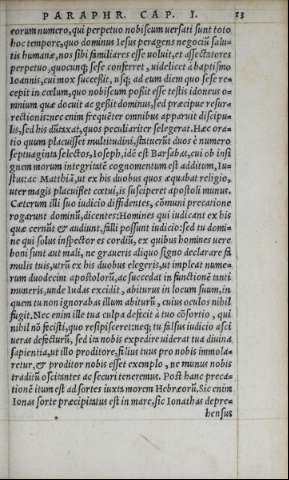 PARAPHR. CAP. I. 13
eorum numero, qui perpetuo nobiscum uersati sunt toto
hoc tempore, quo dominus Iesus peragens negociũ salu-
tis humanæ, nos sibi familiares esse uoluit, et assectatores
perpetuo, quocunq; sese conferret, uidelicet a baptismo
Ioannis, cui mox successit, usq; ad eum diem quo sese re-
cepit in cœlum, quo nobiscum possit esse testis idoneus o-
mnium quæ docuit ac gessit dominus, sed præcipue resur-
rectionis: nec enim frequẽter omnibus apparuit discipu-
lis, sed his dũtaxat, quos peculiariter selegerat. Hæc ora-
tio quum placuisset multitudini, statuerũt duos è numero
septuaginta selectos, Ioseph, idẽ est Barsabas, cui ob insi
gnem morum integritatẽ cognomentum est additum, Iu-
stus: ac Matthiã, ut ex his duobus quos æquabat religio,
uter magis placuisset cœtui, is susciperet apostoli munus.
Cæterum illi suo iudicio diffidentes, cõmuni precatione
rogarunt dominũ, dicentes: Homines qui iudicant ex his
quæ cernũt & audiunt, falli possunt iudicio: sed tu domi-
ne qui solus inspector es cordiũ, ex quibus homines uere
boni sunt aut mali, ne graueris aliquo signo declarare fa
mulis tuis, utrũ ex his duobus elegeris, ut impleat nume-
rum duodecim apostolorũ, ac succedat in functionẽ tanti
muneris, unde Iudas excidit, abiturus in locum suum, in
quem tu non ignorabas illum abiturũ, cuius oculos nihil
fugit. Nec enim ille tua culpa defecit à tuo cõsortio, qui
nihil nõ fecisti, quo resipisceret: neq; tu falsus iudicio asci
ueras defecturũ, sed in nobis expedire uiderat tua diuina
sapientia, ut illo proditore, filius tuus pro nobis immola-
retur, & proditor nobis esset exemplo, ne munus nobis
traditũ oscitantes ac securi teneremus. Post hanc preca-
tionẽ itum est ad sortes iuxta morem Hebræorũ. Sic enim
Ionas sorte præcipitatus est in mare, sic Ionathas depre-
hensus